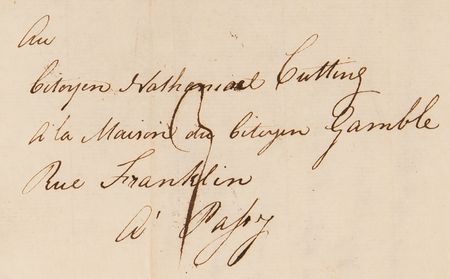 Au
Citoyen Nathanael Cutting
A la Maison du Citoyen Gamble
Rue Franklin
A' Passy